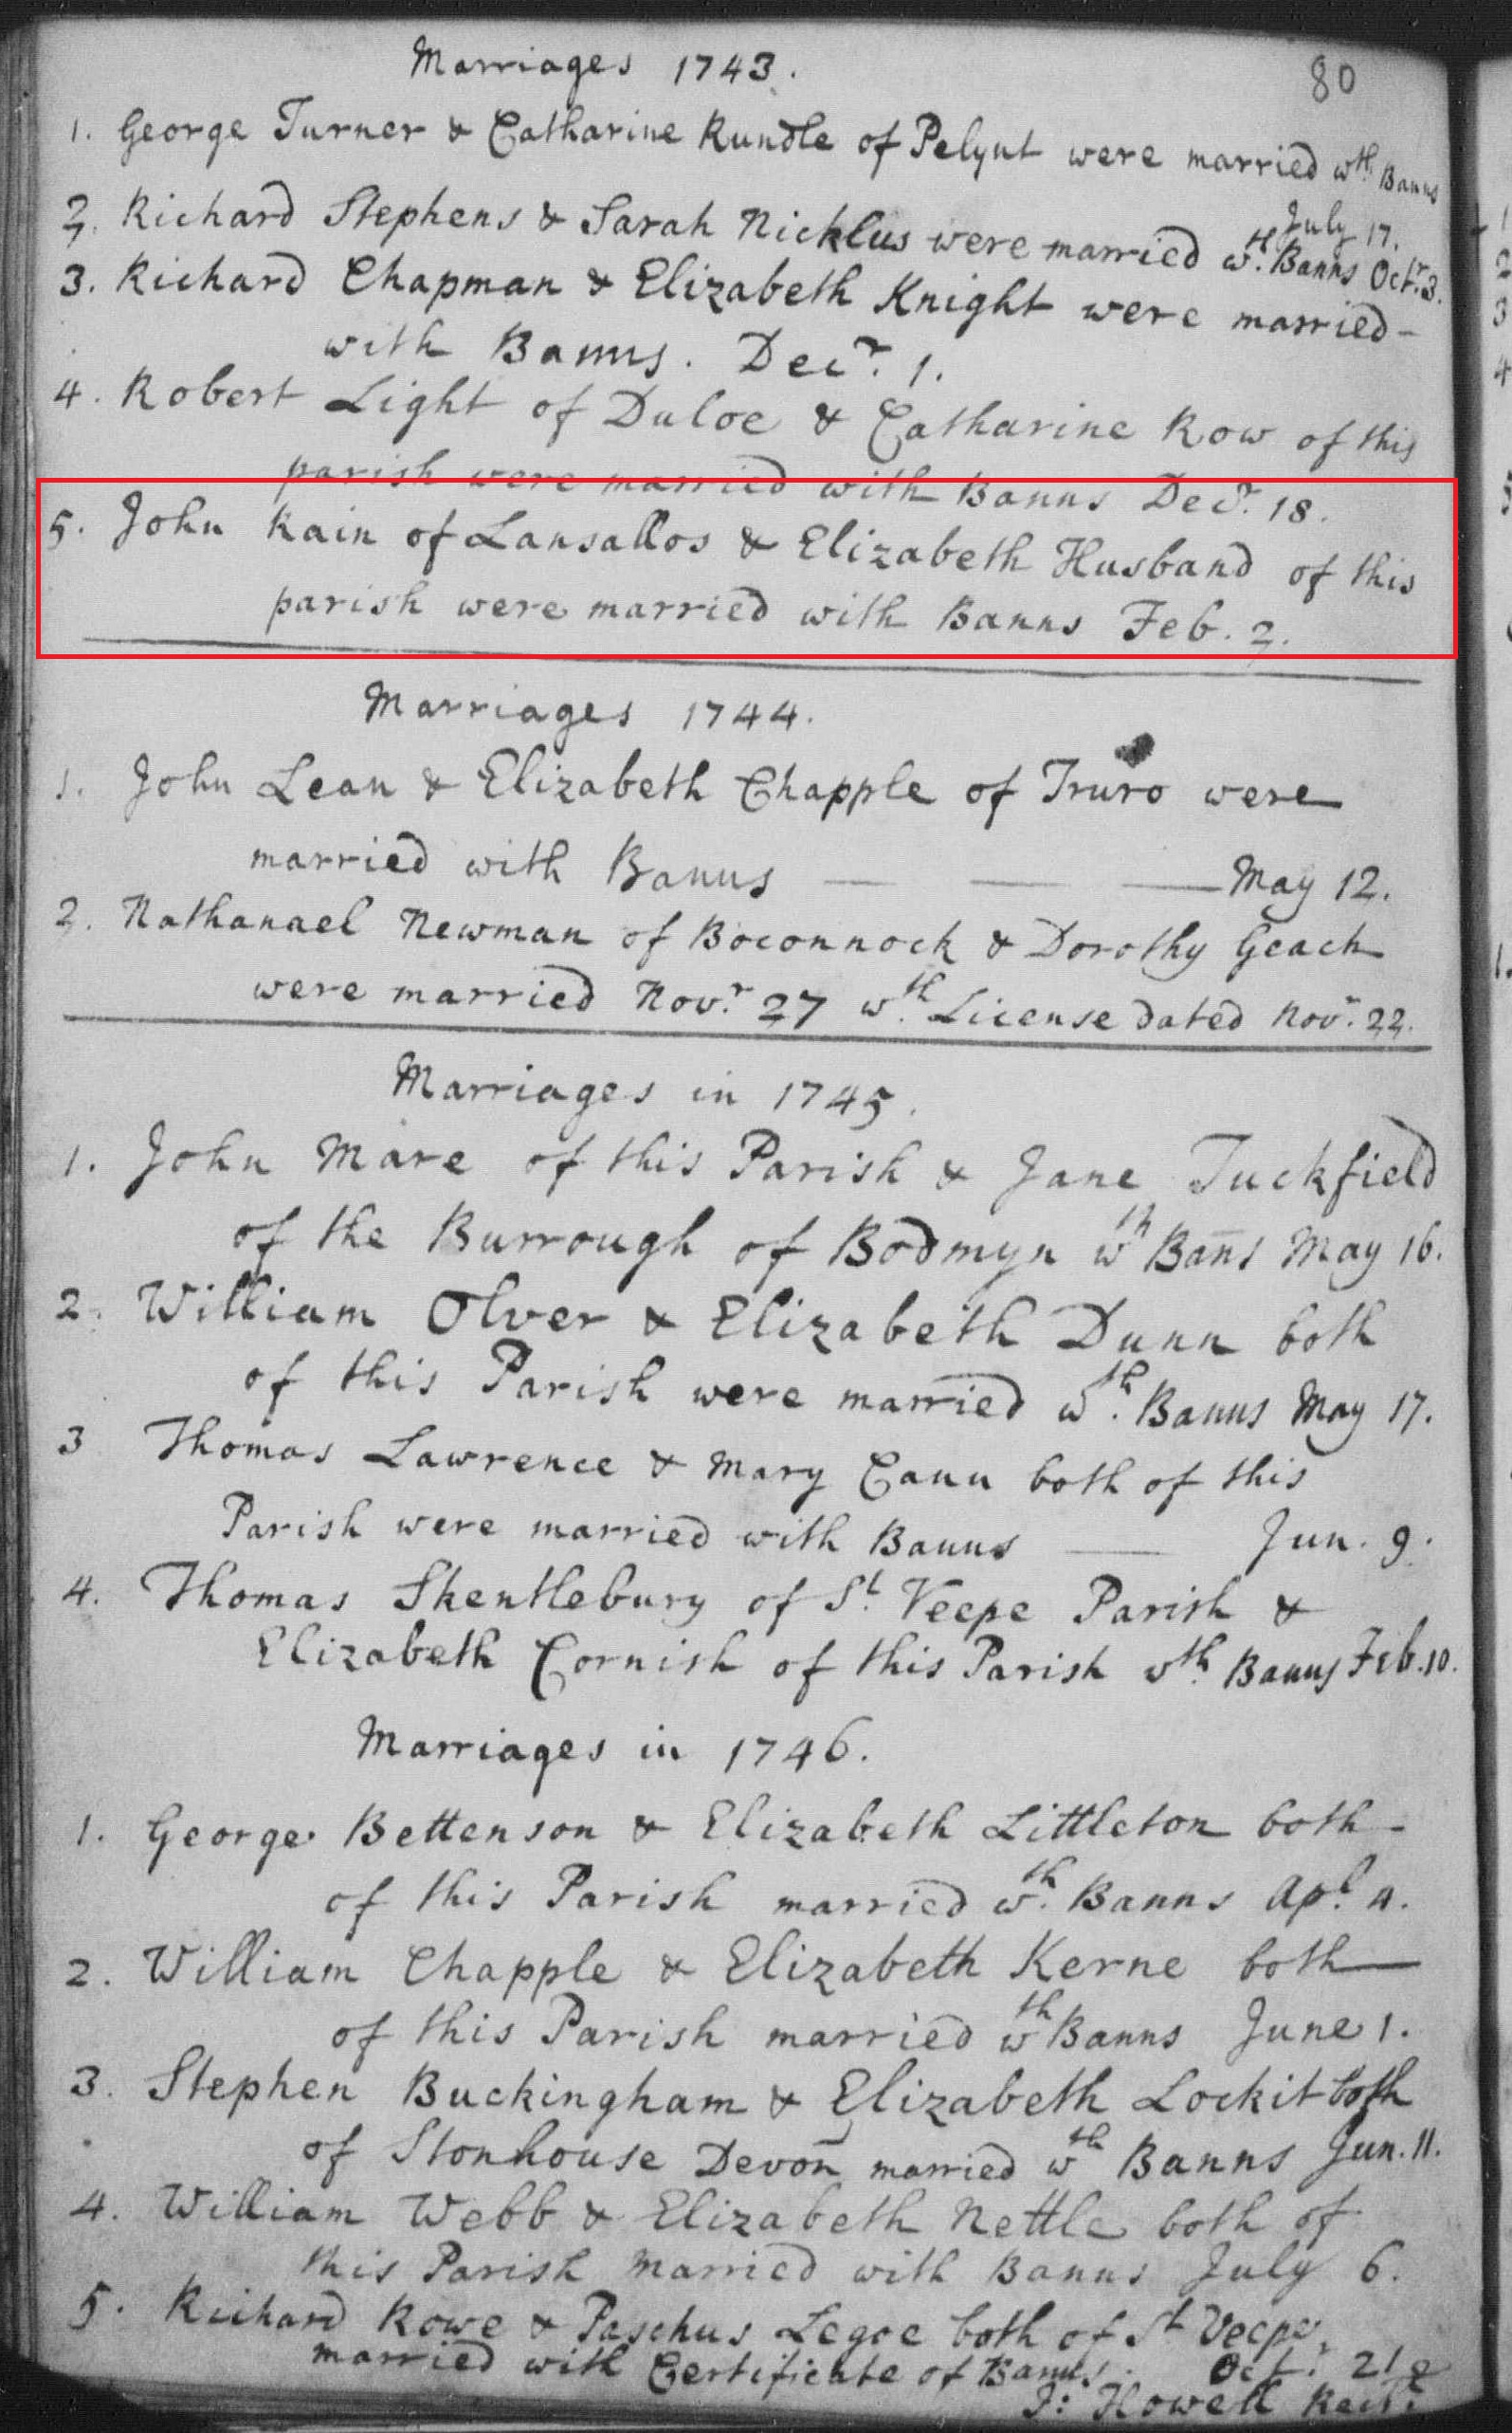 Marriages 1743.
80
1. George Turner & Catharine Rundle of Pelynt were married wth. Banns
July 17.
2. Richard Stephens & Sarah Nicklus were married wth. Banns Octr. 3.
3. Richard Chapman & Elizabeth Knight were married-
with Banns. Decr. 1.
4. Robert Light of Duloe & Catharine Row of this
parish were married with Banns Decr. 18.
5. John Kain of Lansallos & Elizabeth Husband of this
parish were married with Banns Feb. 2.
Marriages 1744.
1. John Lean & Elizabeth Chapple of Truro were
married with Banns — — — May 12.
2. Nathanael Newman of Boconnock & Dorothy Geach
were married Novr. 27 wth. License dated Novr. 22.
Marriages in 1745.
1. John Mare of this Parish & Jane Tuckfield
of the Burrough of Bodmyn wth Bañs May 16.
2. William Olver & Elizabeth Dunn both
of this Parish were married wth. Banns May 17.
3 Thomas Lawrence & Mary Cann both of this
Parish were married with Banns — Jun. 9.
4. Thomas Skentlebury of St. Veepe Parish &
Elizabeth Cornish of this Parish wth. Banns Feb. 10.
Marriages in 1746.
1. George Bettenson & Elizabeth Littleton both-
of this Parish married wth. Banns Apl. 4.
2. William Chapple & Elizabeth Kerne both—
of this Parish married wth Banns June 1.
3. Stephen Buckingham & Elizabeth Lockit both
of Stonhouse Devon married wth Banns Jun. 11.
4. William Webb & Elizabeth Nettle both of
this Parish married with Banns July 6.
5. Richard Rowe & Paschus Legoe both of St Veepe
married with Certificate of Banns. Octr. 21
J: Howell Rectr.